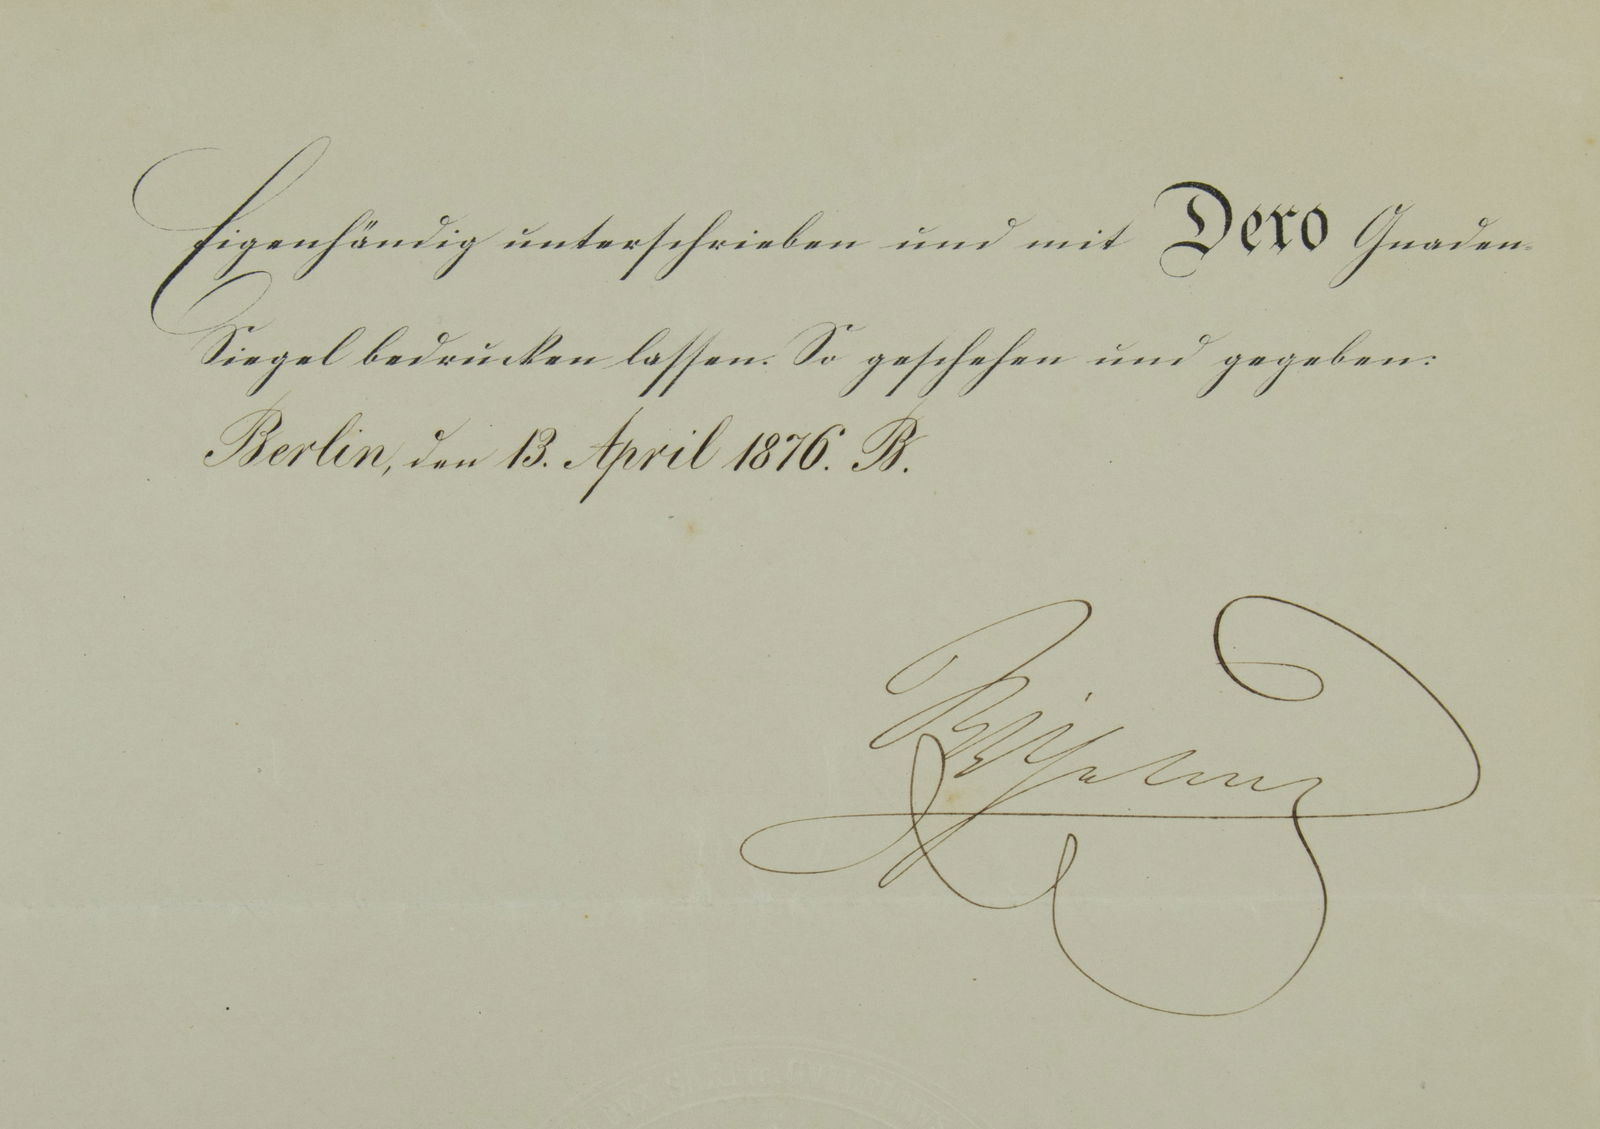 Eigenhändig unterschrieben und mit Dero Gnaden-
Siegel bedrucken lassen. So geschehen und gegeben:
Berlin, den 13. April 1876. B.
Wilhelm